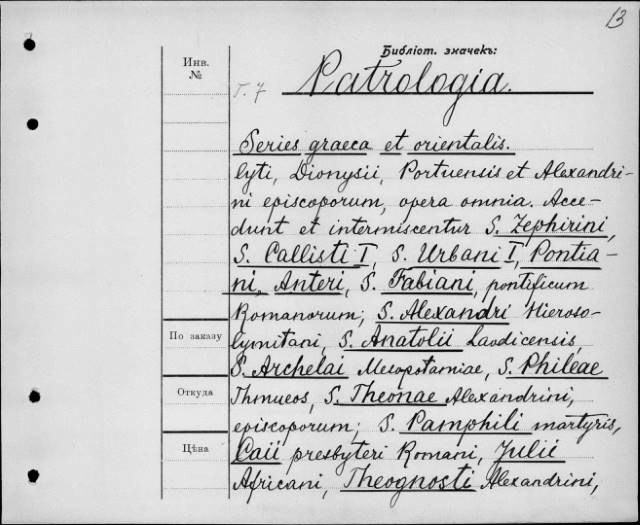 13
Библіот. значекъ:
Инв.
№
Т. 7
Patrologia.
Series graeca et orientalis.
lyti, Dionysii, Portuensis et Alexandri-
ni episcoporum, opera omnia. Acce-
dunt et intermiscentur S. Zephirini,
S. Callisti I, S. Urbani I, Pontia-
ni, Anteri, S. Fabiani, pontificum
Romanorum; S. Alexandri Hieroso-
lymitani, S. Anatolii Laodicensis,
По заказу
S. Archelai Mesopotamiae, S. Phileae
Откуда
Thmueos, S. Theonae Alexandrini,
episcoporum; S. Pamphili martyris,
Цѣна
Caii presbyteri Romani, Julii
Africani, Theognosti Alexandrini,